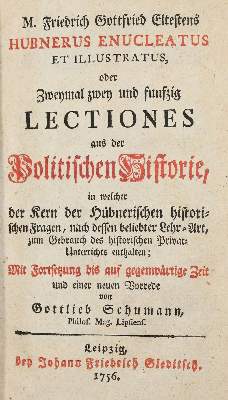 M. Friedrich Gottfried Eltestens
HUBNERUS ENUCLEATUS
ET ILLUSTRATUS,
oder
Zweymal zwey und funfzig
LECTIONES
aus der
Politischen Historie,
in welcher
der Kern der Hübnerischen histori-
schen Fragen, nach dessen beliebter Lehr-Art,
zum Gebrauch des historischen Privat-
Unterrichts enthalten;
Mit Fortsetzung bis auf gegenwärtige Zeit
und einer neuen Vorrede
von
Gottlieb Schumann,
Philos. Mag. Lipsiens.
Leipzig,
bey Johann Friedrich Gleditsch.
1756.